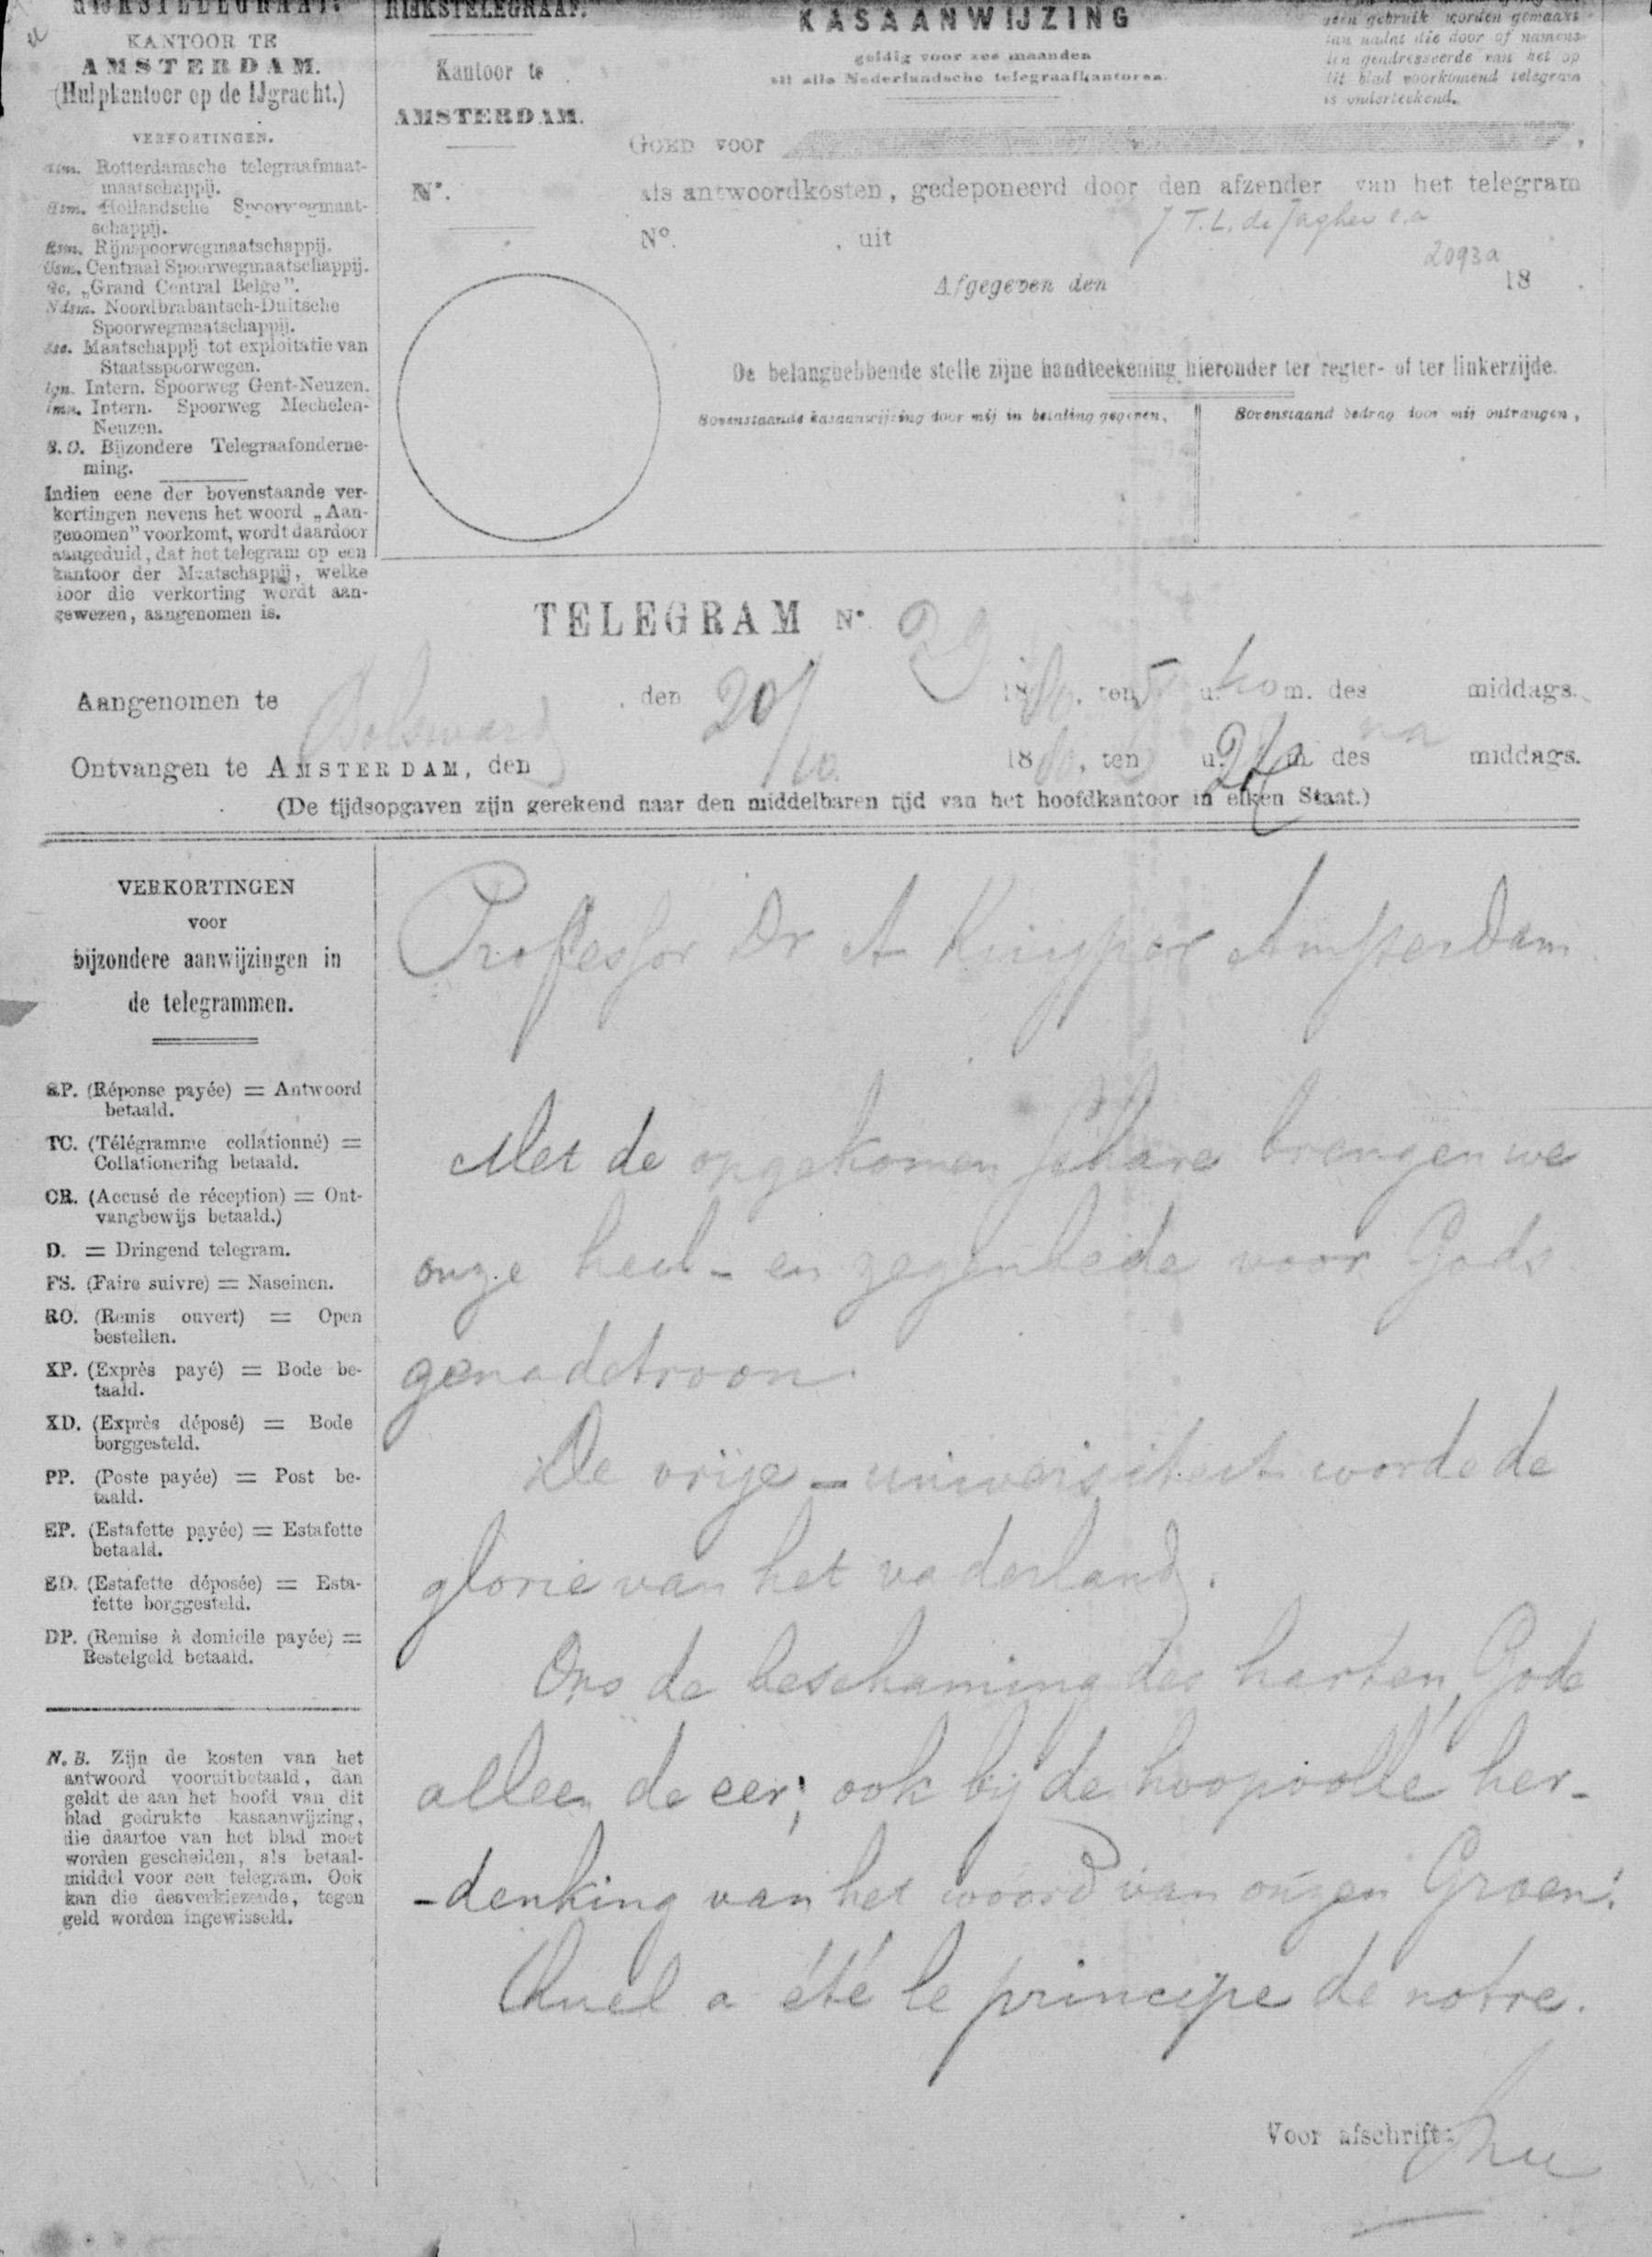 RIJKSTELEGRAAF.
KANTOOR TE
AMSTERDAM.
(Hulpkantoor op de IJgracht.)
VERKORTINGEN.
Rotterdamsche telegraafmaat-
maatschappij.
Hsm. Hollandsche Spoorwegmaat-
schappij.
Rsm. Rijnspoorwegmaatschappij.
Csm. Centraal Spoorwegmaatschappij.
Gc. „Grand Central Belge”.
Ndsm. Noordbrabantsch-Duitsche
Spoorwegmaatschappij.
Maatschappij tot exploitatie van
Staatsspoorwegen.
Ign. Intern. Spoorweg Gent-Neuzen.
Imn. Intern. Spoorweg Mechelen-
Neuzen.
B.O. Bijzondere Telegraafonderne-
ming.
Indien eene der bovenstaande ver-
kortingen nevens het woord „Aan-
genomen” voorkomt, wordt daardoor
aangeduid, dat het telegram op een
kantoor der Maatschappij, welke
door die verkorting wordt aan-
gewezen, aangenomen is.
RIJKSTELEGRAAF.
Kantoor te
AMSTERDAM.
N°.
KASAANWIJZING
geldig voor zes maanden
op alle Nederlandsche telegraafkantoren.
geen gebruik worden gemaakt
dan nadat die door of namens
den geadresseerde van het op
dit blad voorkomend telegram
is onderteekend.
GOED VOOR ,
als antwoordkosten, gedeponeerd door den afzender van het telegram
J. T. L. de Jagher e.a
N°. , uit
2093a
Afgegeven den 18 .
De belanghebbende stelle zijne handteekening hieronder ter regter- of ter linkerzijde.
Bovenstaande kasaanwijzing door mij in betaling gegeven,
Bovenstaand bedrag door mij ontvangen,
TELEGRAM N° 29
Aangenomen te Bolsward, den 20/10 1880, ten 5 u. m. des middags.
Ontvangen te AMSTERDAM, den 1880, ten 6 u. m. des na middags.
(De tijdsopgaven zijn gerekend naar den middelbaren tijd van het hoofdkantoor in elken Staat.)
VERKORTINGEN
voor
bijzondere aanwijzingen in
de telegrammen.
RP. (Réponse payée) = Antwoord
betaald.
TC. (Télégramme collationné) =
Collationering betaald.
CR. (Accusé de réception) = Ont-
vangbewijs betaald.)
D. = Dringend telegram.
FS. (Faire suivre) = Naseinen.
RO. (Remis ouvert) = Open
bestellen.
XP. (Exprès payé) = Bode be-
taald.
XD. (Exprès déposé) = Bode
borggesteld.
PP. (Poste payée) = Post be-
taald.
EP. (Estafette payée) = Estafette
betaald.
ED. (Estafette déposée) = Esta-
fette borggesteld.
DP. (Remise à domicile payée) =
Bestelgeld betaald.
N.B. Zijn de kosten van het
antwoord vooruitbetaald, dan
geldt de aan het hoofd van dit
blad gedrukte kasaanwijzing,
die daartoe van het blad moet
worden gescheiden, als betaal-
middel voor een telegram. Ook
kan die desverkiezende, tegen
geld worden ingewisseld.
Professor Dr A Kuyper Amsterdam
Met de opgekomen schare brengen we
onze heil- en zegenbede voor Gods
genadetroon.
De vrije-universiteit worde de
glorie van het vaderland.
Ons de beschaming des harten, Gode
alleen de eer; ook bij de hoopvolle her-
-denking van het woord van onzen Groen:
Quel a été le principe de notre.
Voor afschrift: